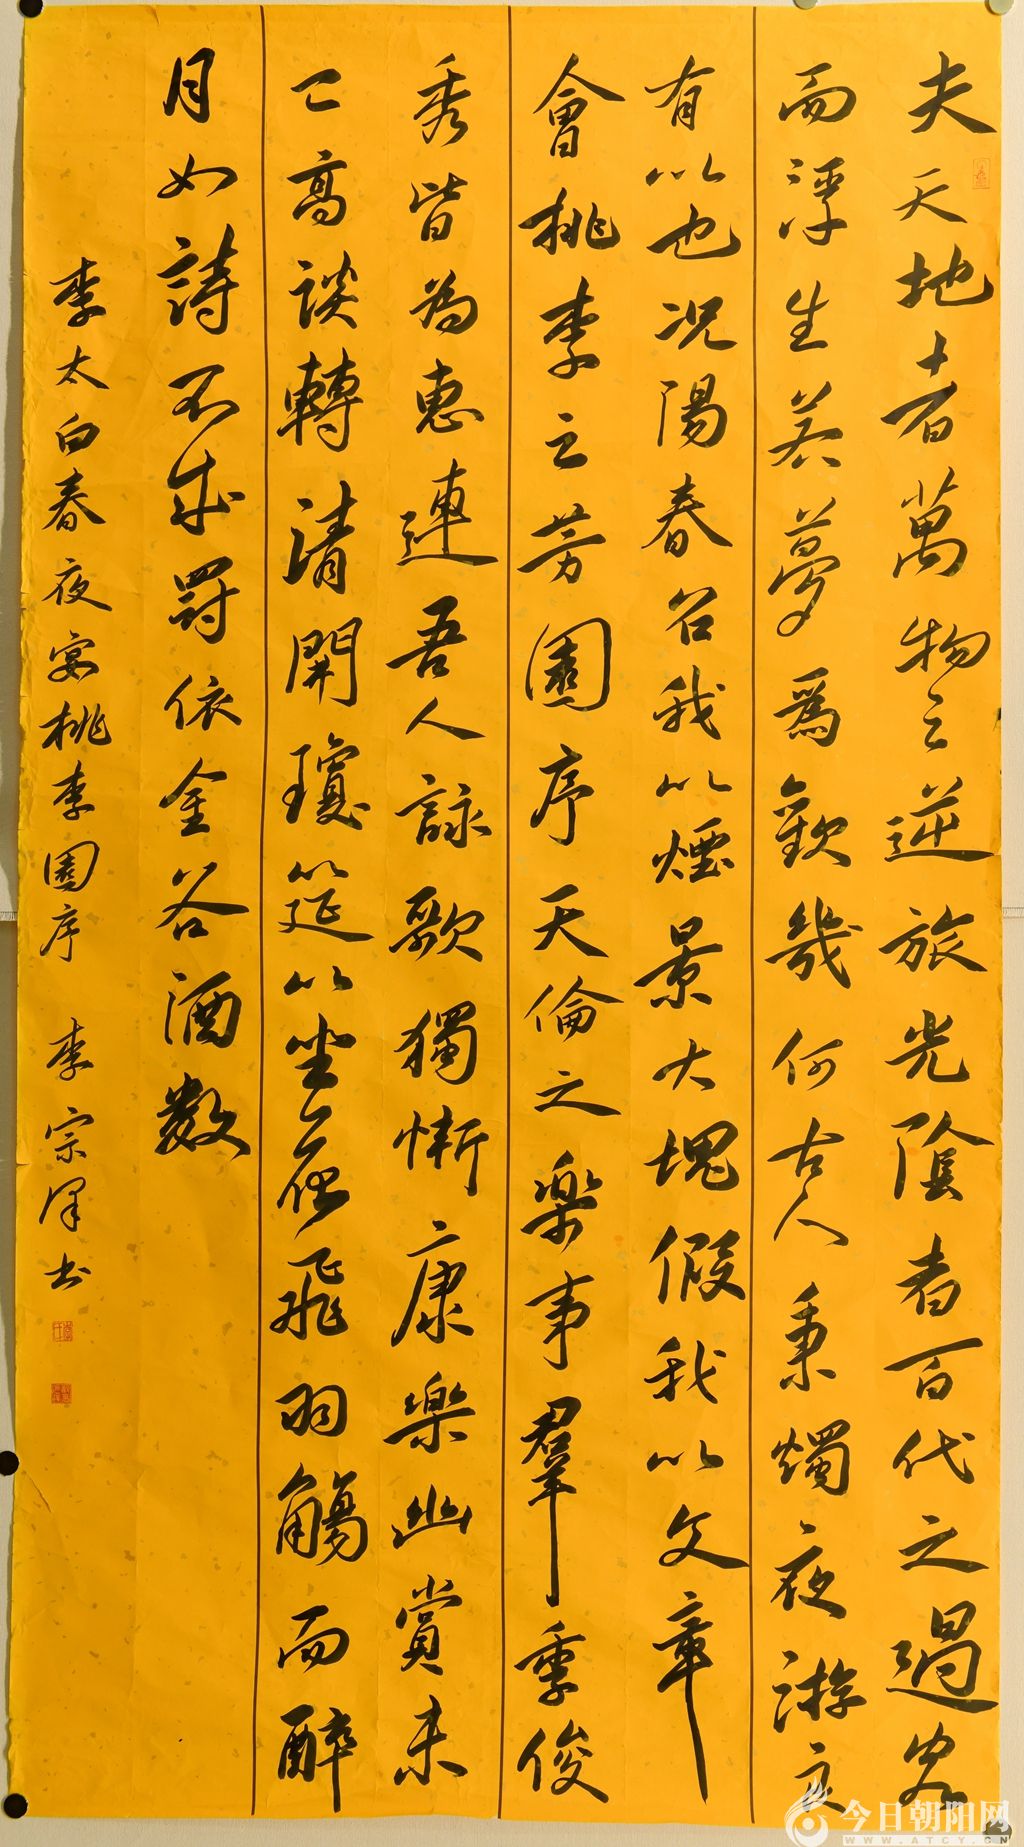 夫天地者萬物之逆旅光陰者百代之過客
而浮生若夢爲歡幾何古人秉燭夜游良
有以也况陽春召我以煙景大塊假我以文章
會桃李之芳園序天倫之樂事羣季俊
秀皆為惠連吾人詠歌獨慚康樂幽賞未
已高談轉清開瓊筵以坐花飛羽觴而醉
月如詩不成罰依金谷酒數
李太白春夜宴桃李園序 李宗澤书
今日朝阳网
WWW.ATCY.CN